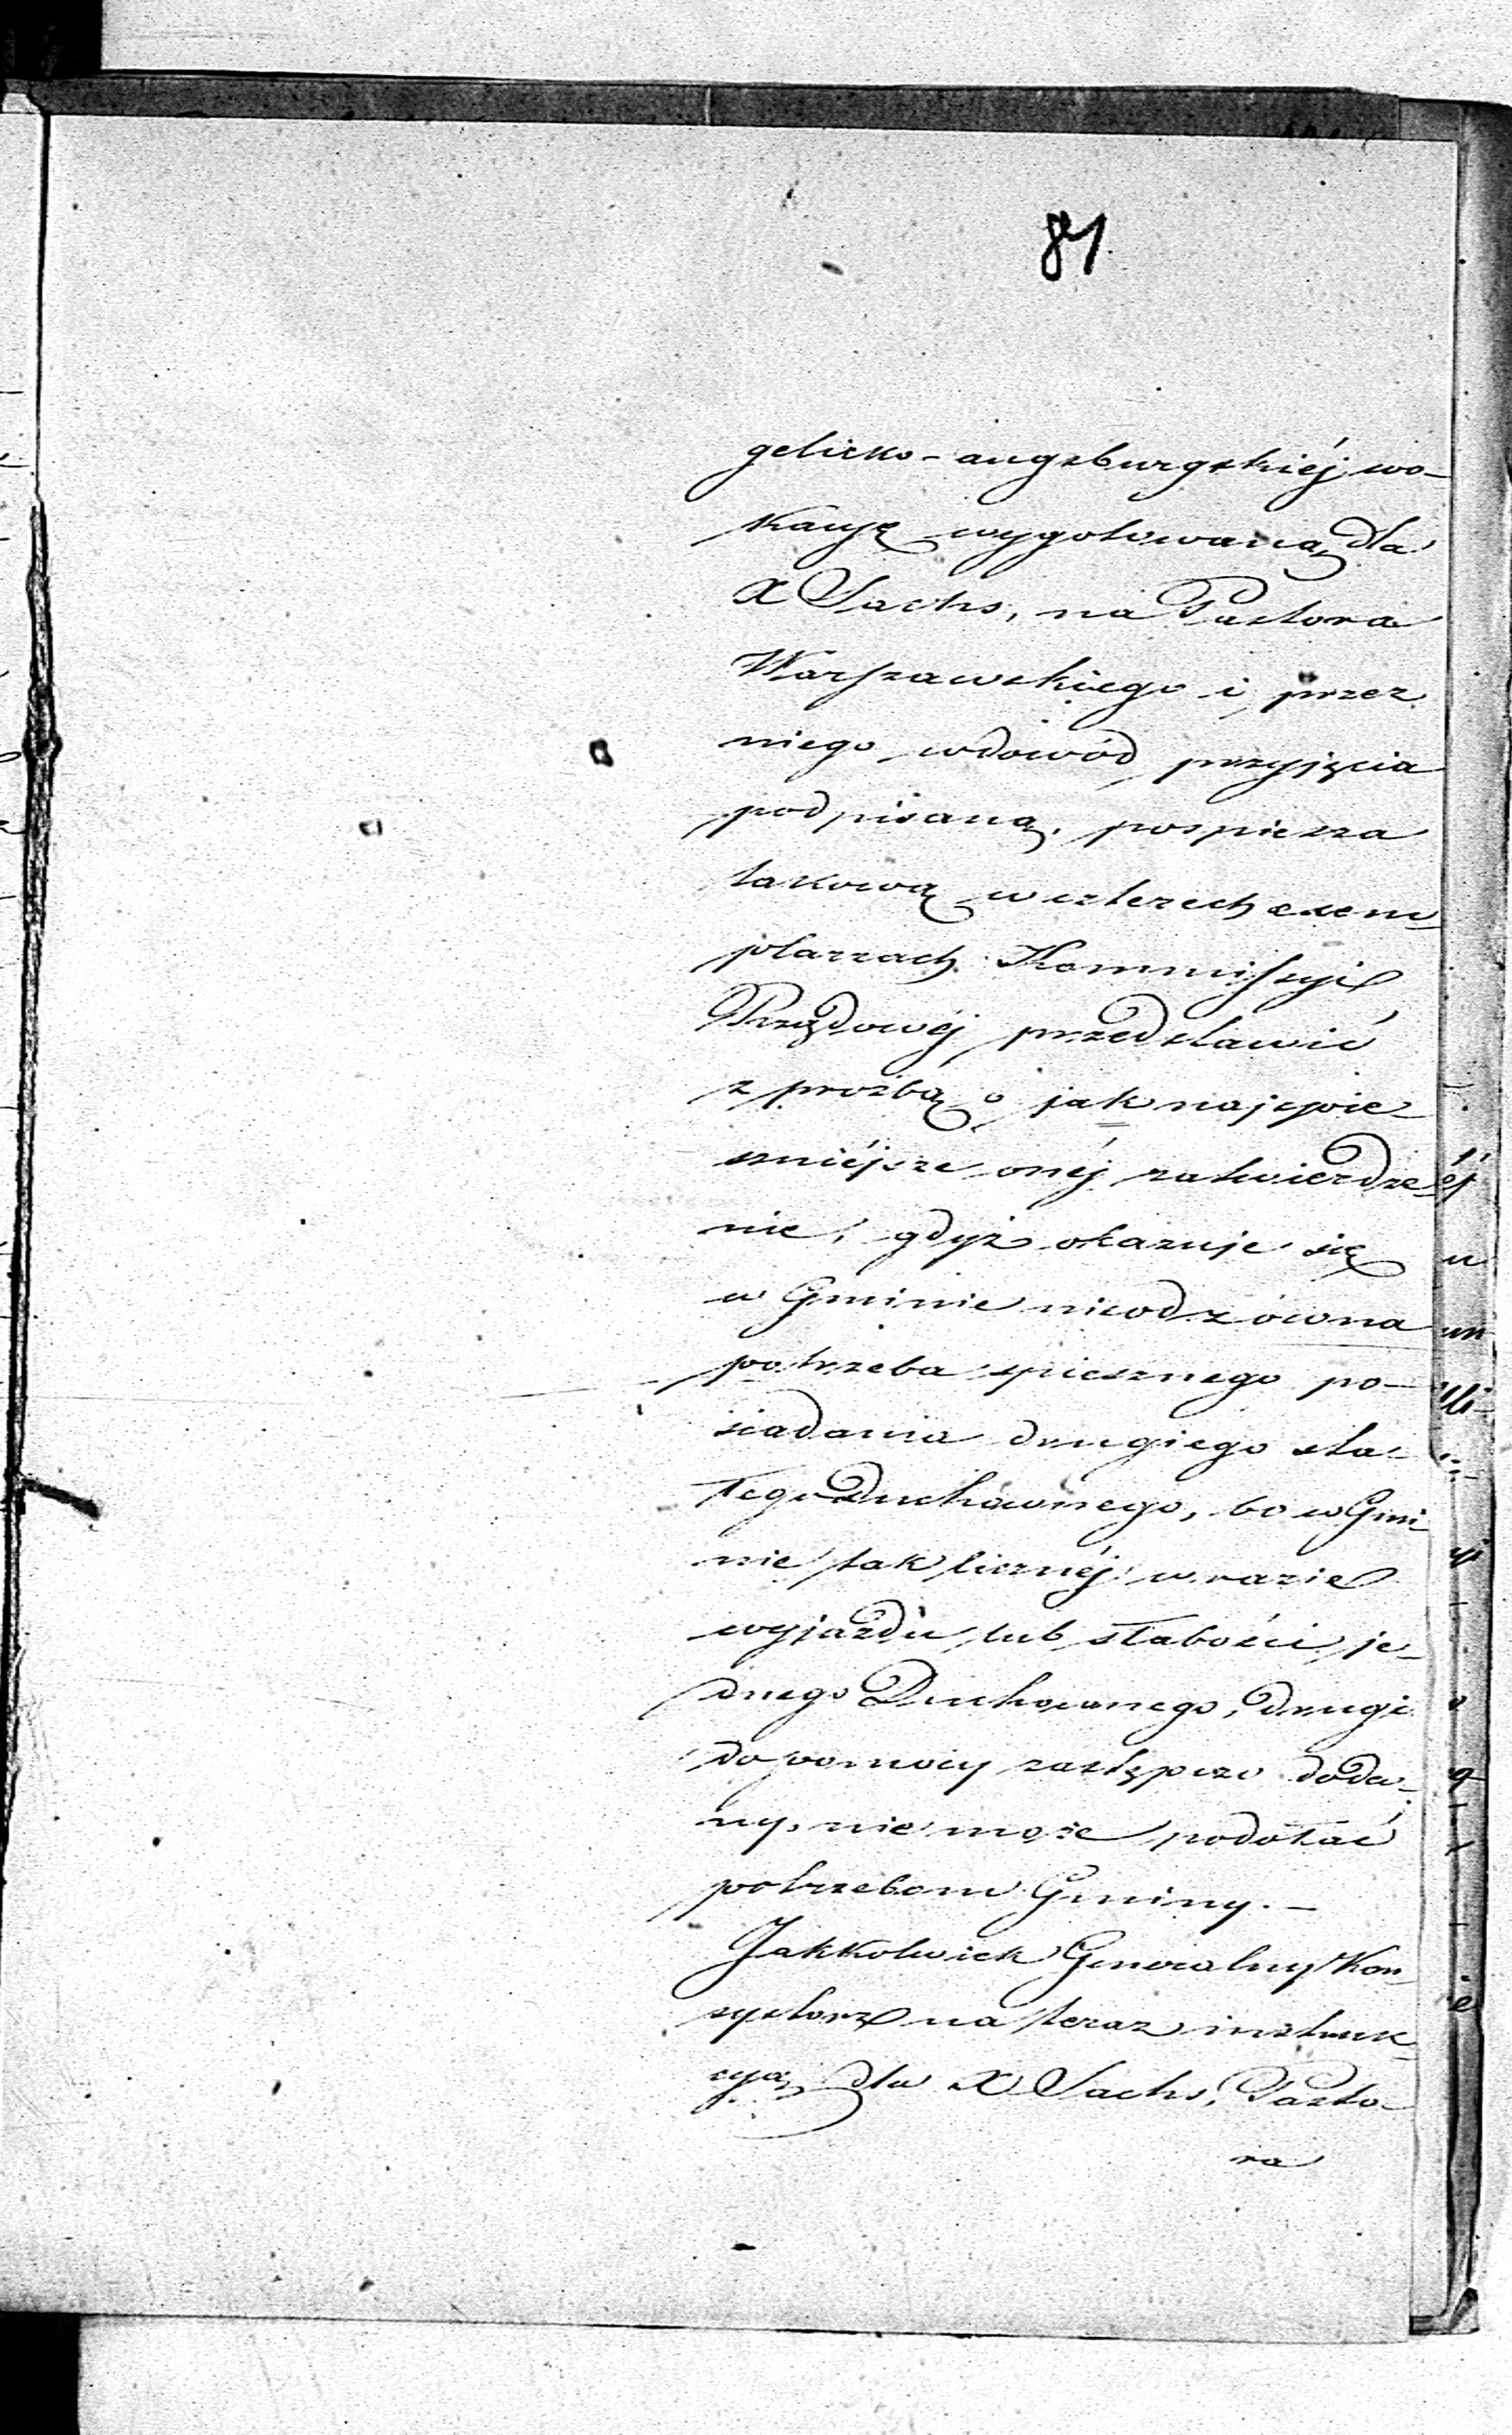 81
gelicko-augsburgskiéj wo-
kacyę wygotowaną dla
X Sachs, na Pastora
Warszawskiego i przez
niego wdowód przyjęcia
podpisaną, pospiesza
takową w czterech exem-
plarzach Kommissyi
Rządowéj przedstawić
z prożbą o jak najspie-
szniéjsze onéj zatwierdze-
nie, gdyż okazuje się
w Gminie nieodzowna
potrzeba spiesznego po-
siadania drugiego sta-
łego Duchownego, bo w Gmi-
nie tak licznéj w razie
wyjazdu lub słabości je-
dnego Duchownego, drugi
do pomocy zastępczo doda-
ny, nie może podołać
potrzebom Gminy. –
Jakkolwiek Generalny Kon-
systorz na teraz instruk-
cyą dla X Sachs, Pasto-
ra